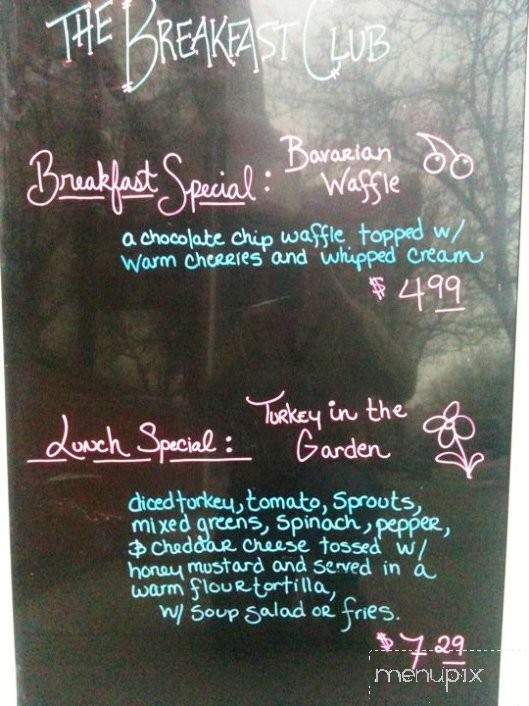 THE BREAKFAST CLUB
Breakfast Special: Bavarian
Waffle
a chocolate chip waffle topped w/
warm cherries and whipped cream
$4.99
Lunch Special: Turkey in the
Garden
diced turkey, tomato, sprouts,
mixed greens, spinach, pepper,
& cheddar cheese tossed w/
honey mustard and served in a
warm flour tortilla,
w/ soup salad or fries.
$7.29
menupix